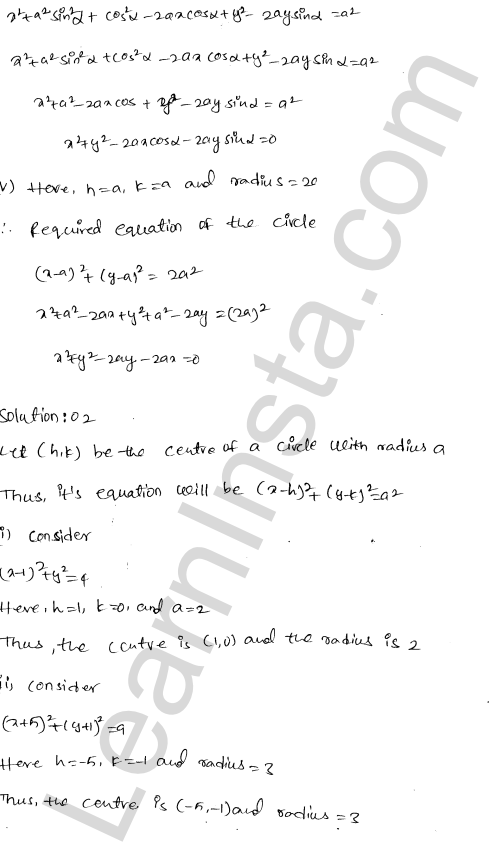 x²+a² sin²α + cos²α - 2ax cosα + y² - 2ay sinα = a²
x²+a² sin²α + cos²α - 2ax cosα + y² - 2ay sinα = a²
x²+a² - 2ax cos + y² - 2ay sinα = a²
x²+y² - 2ax cosα - 2ay sinα = 0
V) Here, h=a, k=a and radius = 2a
∴ Required equation of the circle
(x-a)² + (y-a)² = 2a²
x²+a² - 2ax + y²+a² - 2ay = (2a)²
x²+y² - 2ay - 2ax = 0
Solution:02
Let (h,k) be the centre of a circle with radius a
Thus, it's equation will be (x-h)² + (y-k)² = a²
i) consider
(x-1)²+y²=4
Here, h=1, k=0, and a=2
Thus, the centre is (1,0) and the radius is 2
ii) consider
(x+5)²+(y+1)²=9
Here h=-5, k=-1 and radius = 3
Thus, the centre is (-5,-1) and radius = 3
LearnInsta.com